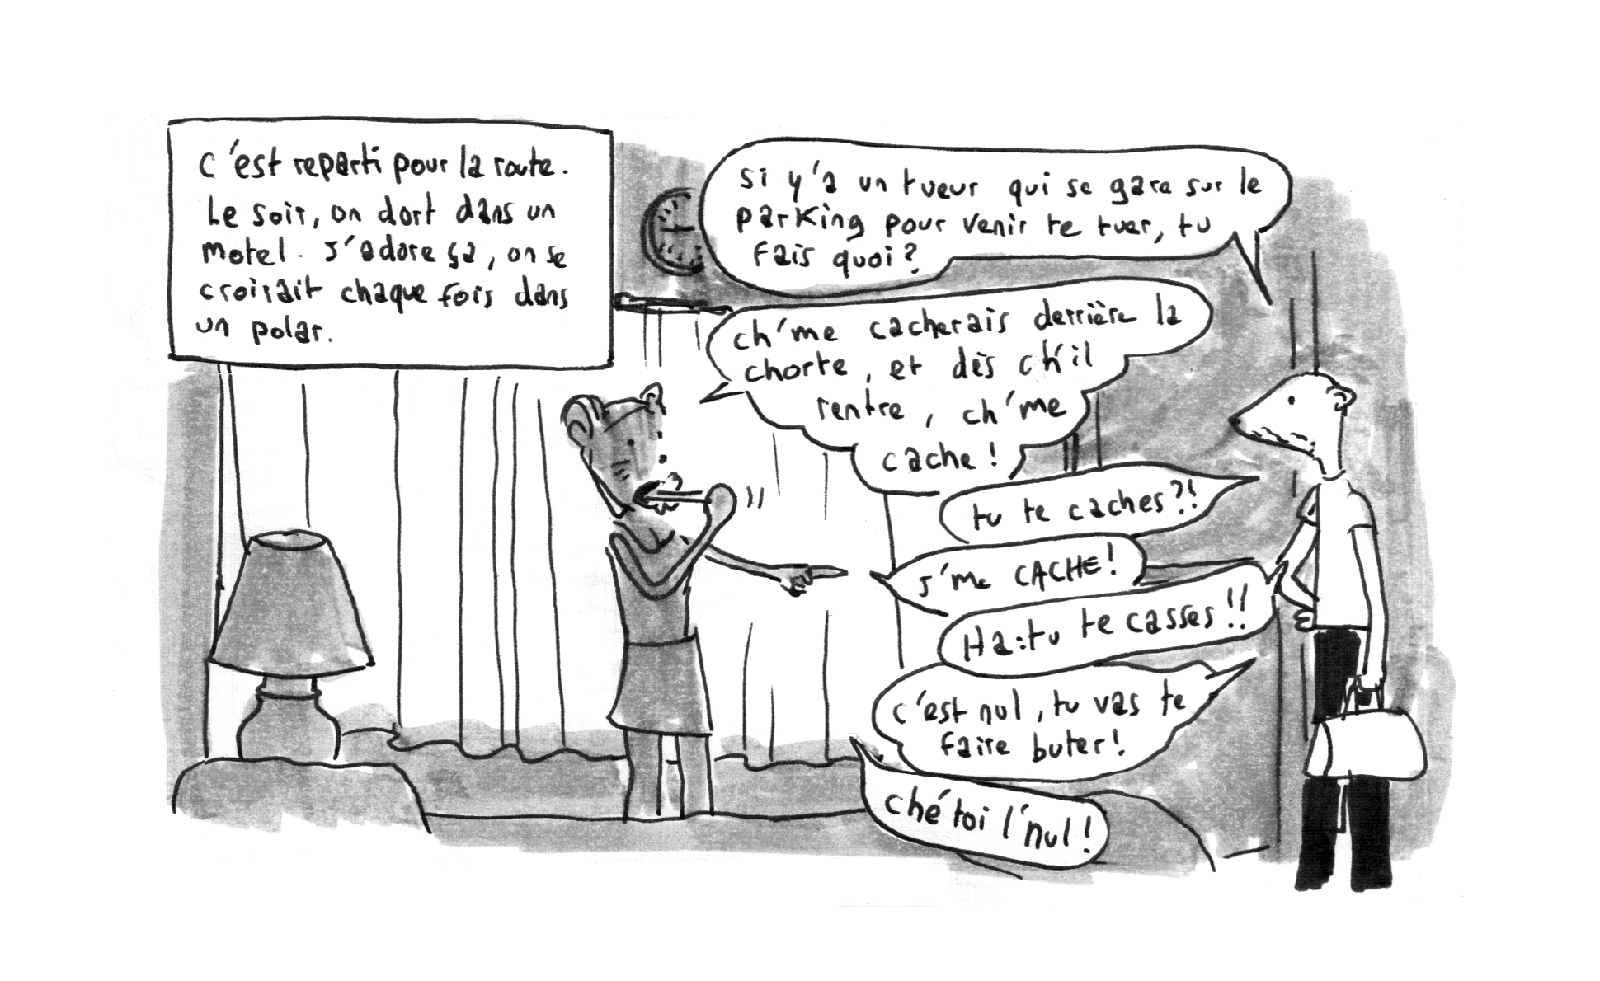 c'est reparti pour la route.
Le soir, on dort dans un
motel. J'adore ça, on se
croirait chaque fois dans
un polar.
si y'a un tueur qui se gare sur le
parking pour venir te tuer, tu
fais quoi?
ch'me cacherais derrière la
chorte, et dès ch'il
rentre, ch'me
cache!
tu te caches?!
J'me CACHE!
Ha: tu te casses!!
c'est nul, tu vas te
faire buter!
ché toi l'nul!